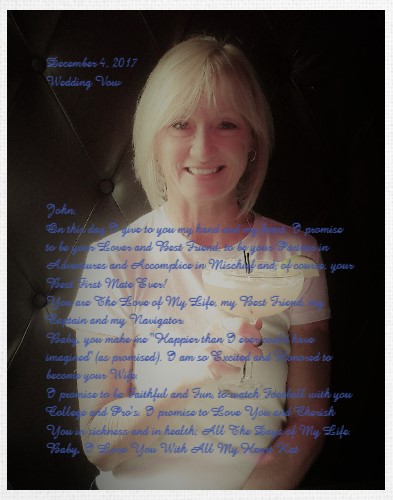 December 4, 2017
Wedding Vow
John,
On this day I give to you my hand and my heart. I promise
to be your Lover and Best Friend, to be your Partner in
Adventures and Accomplice in Mischief and, of course, your
Best First Mate Ever!
You are The Love of My Life, my Best Friend, my
Captain and my Navigator.
Baby, you make me "Happier than I ever could have
imagined" (as promised). I am so Excited and Honored to
become your Wife.
I promise to be Faithful and Fun, to watch Football with you
College and Pro's. I promise to Love You and Cherish
You in sickness and in health; All The Days of My Life.
Baby, I Love You With All My Heart